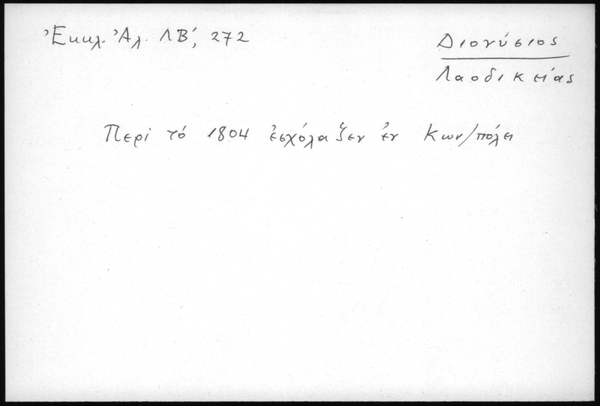 Ἐκκλ. Ἀλ. ΛΒ΄, 272
Διονύσιος
Λαοδικείας
Περὶ τό 1804 ἐσχόλαζεν ἐν Κων/πόλει